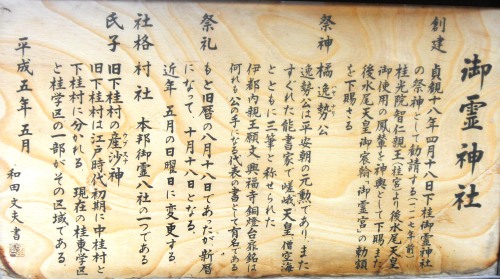 御霊神社
創建 貞観十八年四月十八日下桂御霊神社
の祭神として勧請する(一一一七年前)
桂光院智仁親王(桂宮)より後水尾天皇
御使用の鳳輦を神輿として下賜また
後水尾天皇御宸翰「御霊宮」の勅額
を下賜さる
祭神 橘逸勢公
逸勢公は平安朝の元勲であり また
すぐれた能書家で嵯峨天皇 僧空海
とともに三筆と称せられた
伊都内親王願文 興福寺銅燈台銘は
何れも公の手になる代表の書として有名である
祭礼 もと旧暦の八月十八日であったが新暦
になって、十月十八日となる。
近年 五月の日曜日に変更する
社格 村社 本邦御霊八社の一つである
氏子 旧下桂村の産沙神
旧下桂村は江戸時代初期に中桂村と
下桂村に分かれる 現在の桂東学区
と桂学区の一部がその区域である。
平成五年五月 和田文夫書